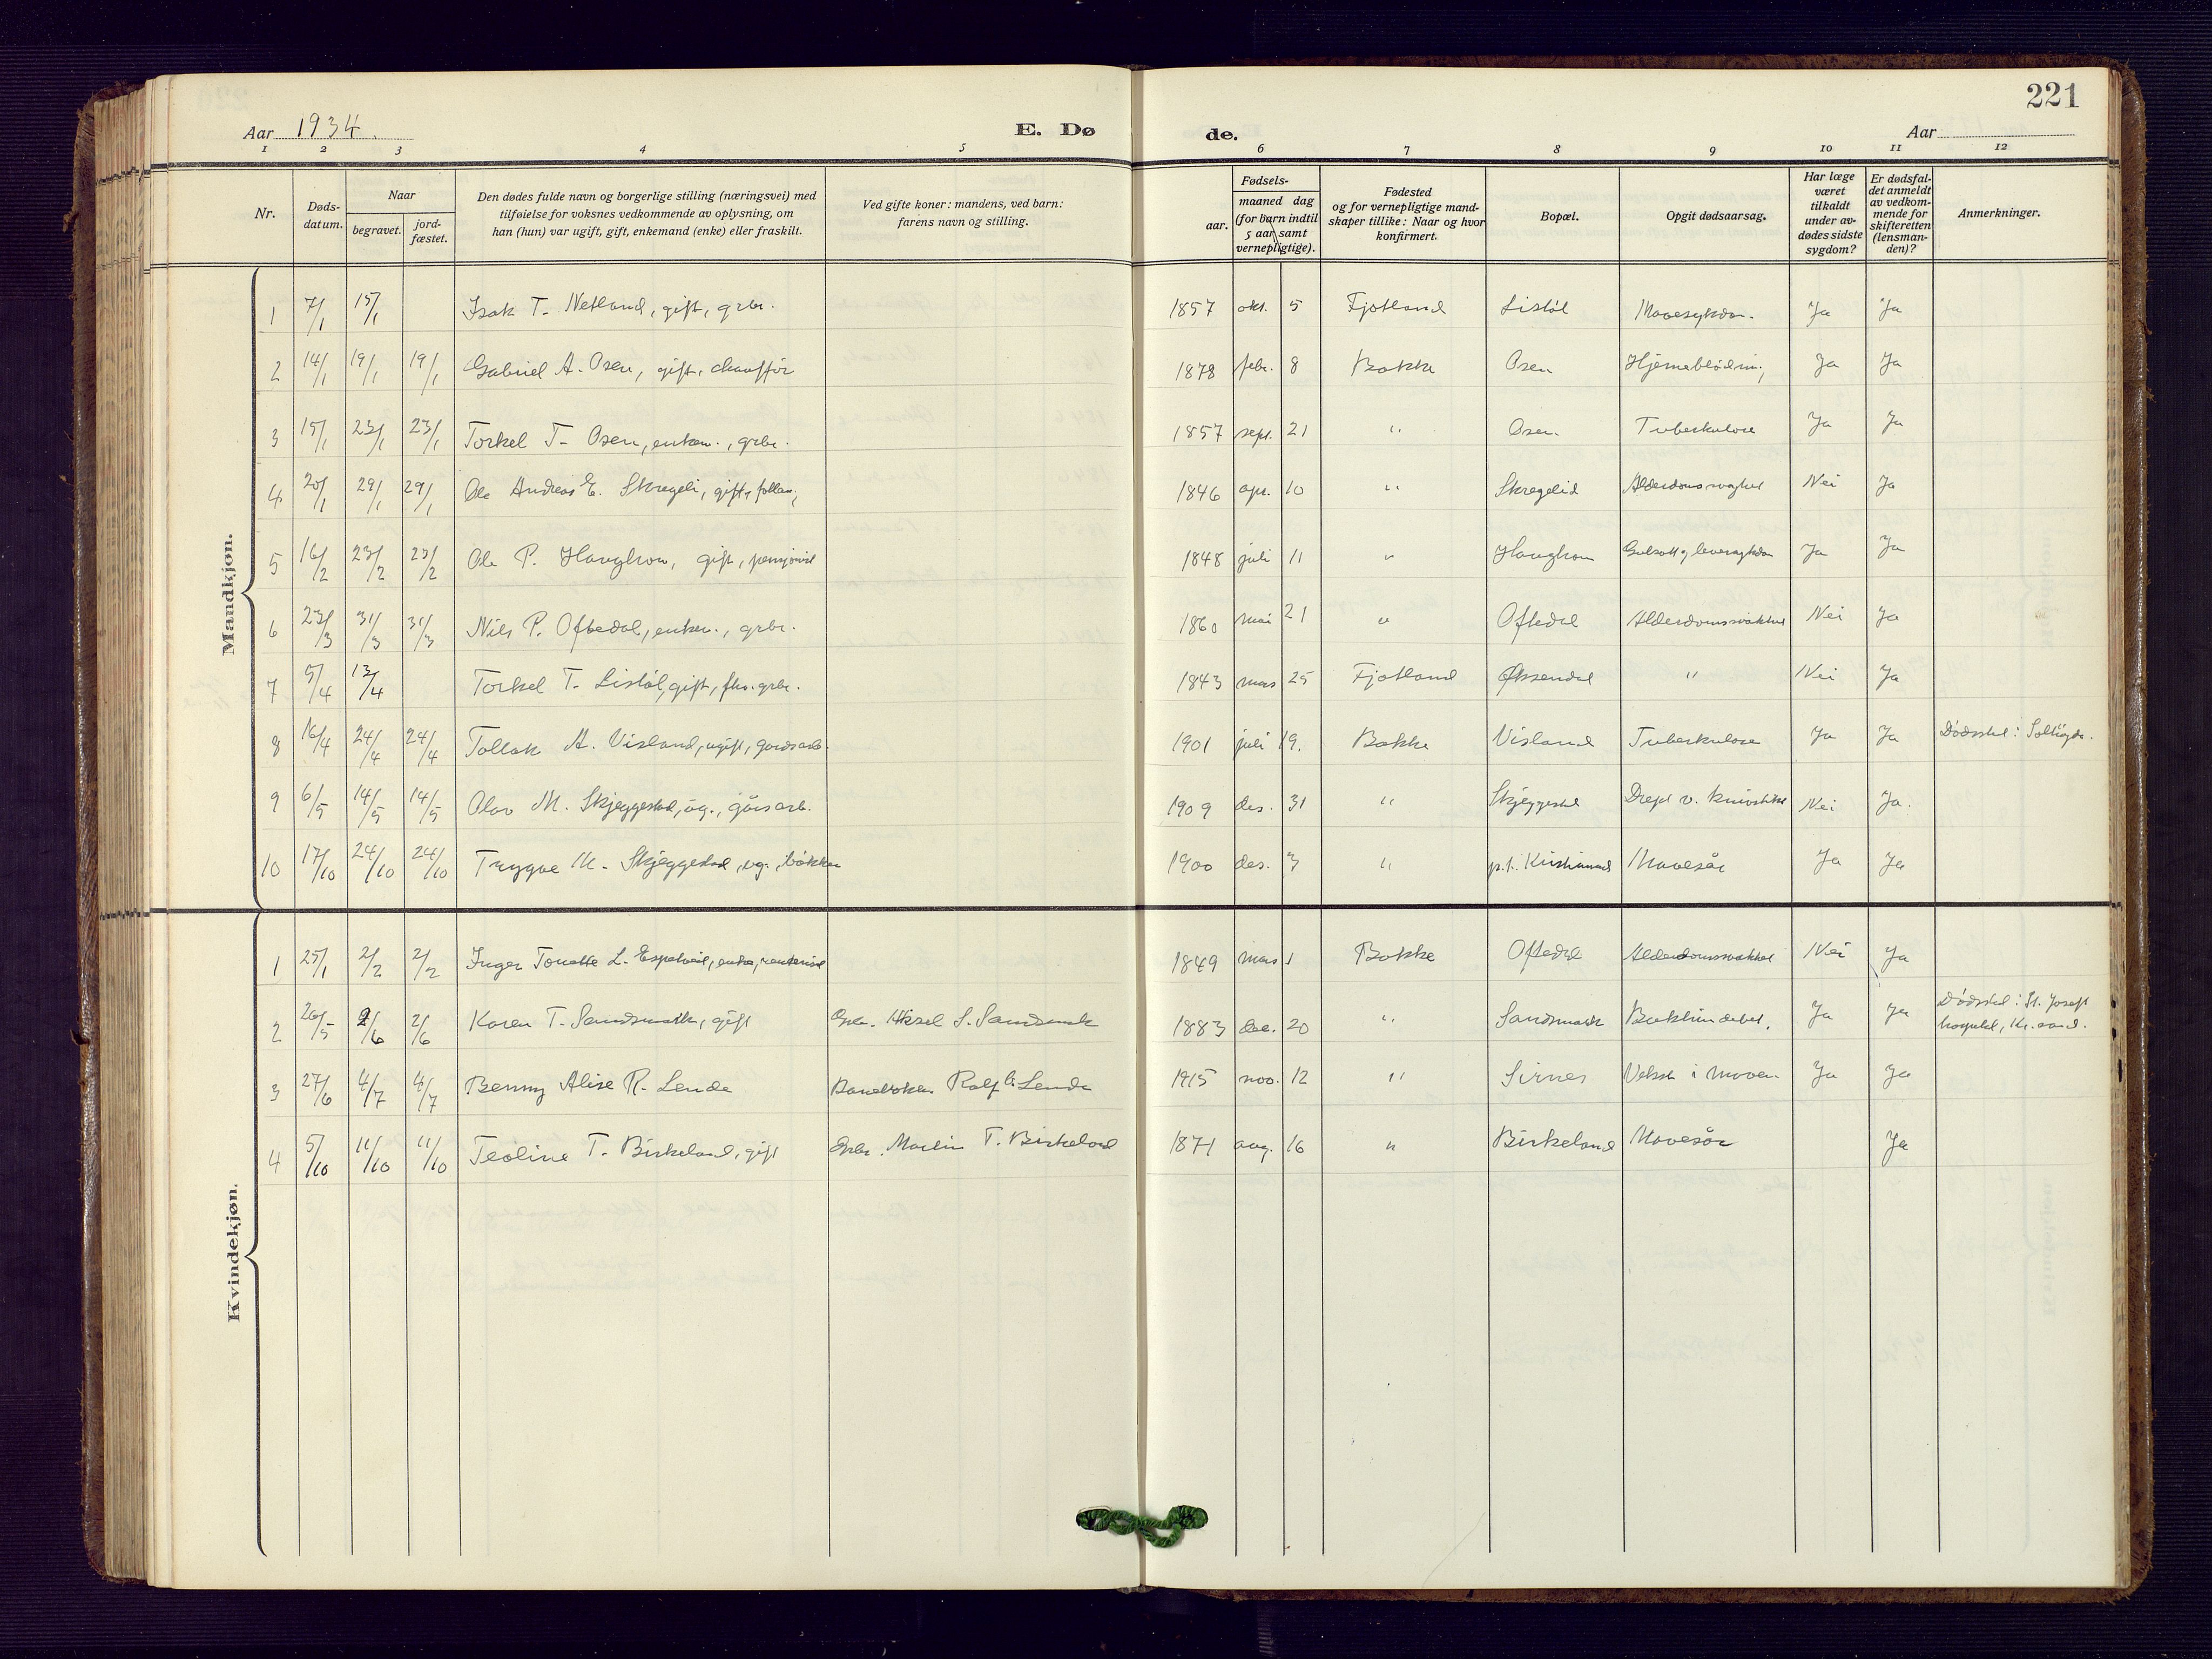 221
Aar 1934.
E. Dø
de.
Aar
1 2 3 4 5 6 7 8 9 10 11 12
Nr.
Døds-
datum.
Naar
begravet.
jord-
fæstet.
Den dødes fulde navn og borgerlige stilling (næringsvei) med
tilføielse for voksnes vedkommende av oplysning, om
han (hun) var ugift, gift, enkemand (enke) eller fraskilt.
Ved gifte koner: mandens, ved barn:
farens navn og stilling.
Fødsels-
aar.
maaned dag
(for barn indtil
5 aar samt
vernepligtige).
Fødested
og for vernepligtige mand-
skaper tillike: Naar og hvor
konfirmert.
Bopæl.
Opgit dødsaarsag.
Har læge
været
tilkaldt
under av-
dødes sidste
sygdom?
Er dødsfal-
det anmeldt
av vedkom-
mende for
skifteretten
(lensman-
den)?
Anmerkninger.
Mandkjøn.
1 7/1 15/1 Isak T. Netland, gift, grbr. 1857 okt. 5 Fjotland Listøl Mavesykdom. Ja Ja
2 14/1 19/1 19/1 Gabriel A. Osen, gift, chauffør 1878 febr. 8 Bakke Osen Hjerneblødning Ja Ja
3 15/1 23/1 23/1 Torkel T. Osen, enkem., grbr. 1857 sept. 21 " Osen Tuberkulose Ja Ja
4 20/1 29/1 29/1 Ole Andreas E. Skregeli, gift, 1846 apr. 10 " Skregelid Alderdomssvaghet Nei Ja
5 16/2 23/2 23/2 Ole P. Haughom, gift, pensjonist 1848 juli 11 " Haughom Gulsott og leversykdom Ja Ja
6 23/3 31/3 31/3 Nils P. Oftedal, enkem., grbr. 1860 mai 21 " Oftedal Alderdomssvakhet Nei Ja
7 5/4 13/4 Torkel T. Listøl, gift, fhv. grbr. 1843 mars 25 Fjotland Øksendal " Nei Ja
8 16/4 24/4 24/4 Tollak A. Visland, ugift, gardsarb. 1901 juli 19. Bakke Visland Tuberkulose Ja Ja Dødssted:
9 6/5 14/5 14/5 Olav M. Skjeggestad, ug., gårsarb. 1909 des. 31 " Skjeggestad Drept v. knivstikk Nei Ja.
10 17/10 24/10 24/10 Trygve M. Skjeggestad, ug., bøkker 1900 des. 3 " p.t. Kristiansand Mavesår Ja Ja
Kvindekjøn.
1 25/1 2/2 2/2 Inger Tonette L. Espetveit, enke, rentenist 1849 mars 1 Bakke Oftedal Alderdomssvakhet Nei Ja
2 26/5 2/6 2/6 Karen T. Sandsmark, gift Grbr. Aksel S. Sandsmark 1883 des. 20 " Sandsmark Ja Ja Dødssted: St. Josefs
hospital, Kr.sand.
3 27/6 4/7 4/7 Benny Alise R. Lende Banevokter Rolf G. Lende 1915 nov. 12 " Sirnes Vekst i maven Ja Ja
4 5/10 11/10 11/10 Teoline T. Birkeland, gift Grbr. Martin T. Birkeland 1871 aug. 16 " Birkeland Mavesår Ja